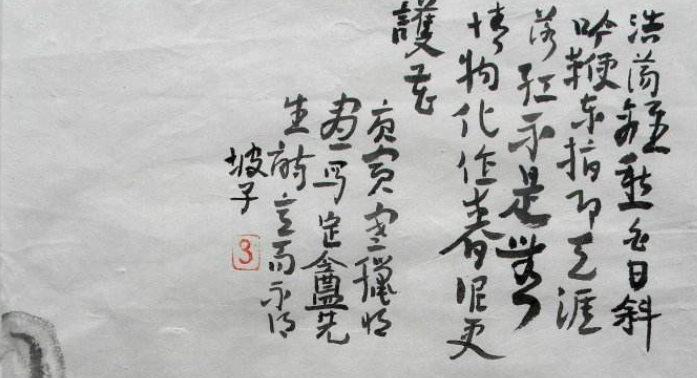 浩蕩離愁白日斜
吟鞭东指即天涯
落红不是無
情物化作春泥更
護花
庚寅寒
盡写定盦先
生詩意而
坡子
3